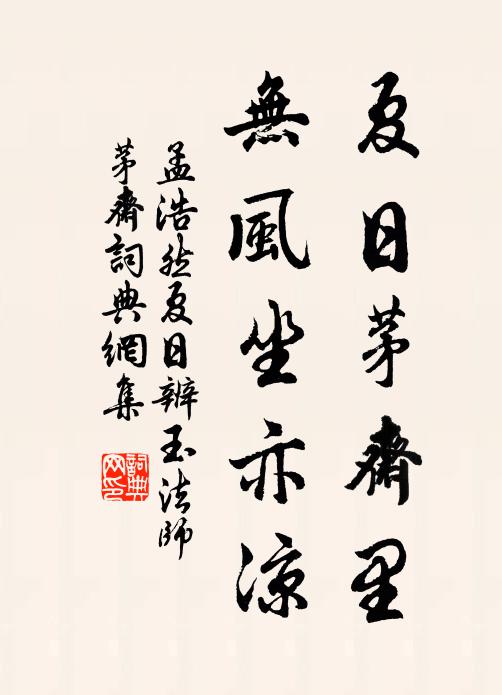 夏日茅齋里
無風坐亦涼
孟浩然夏日辨玉法師
茅齋詞典網集
詞典
网印